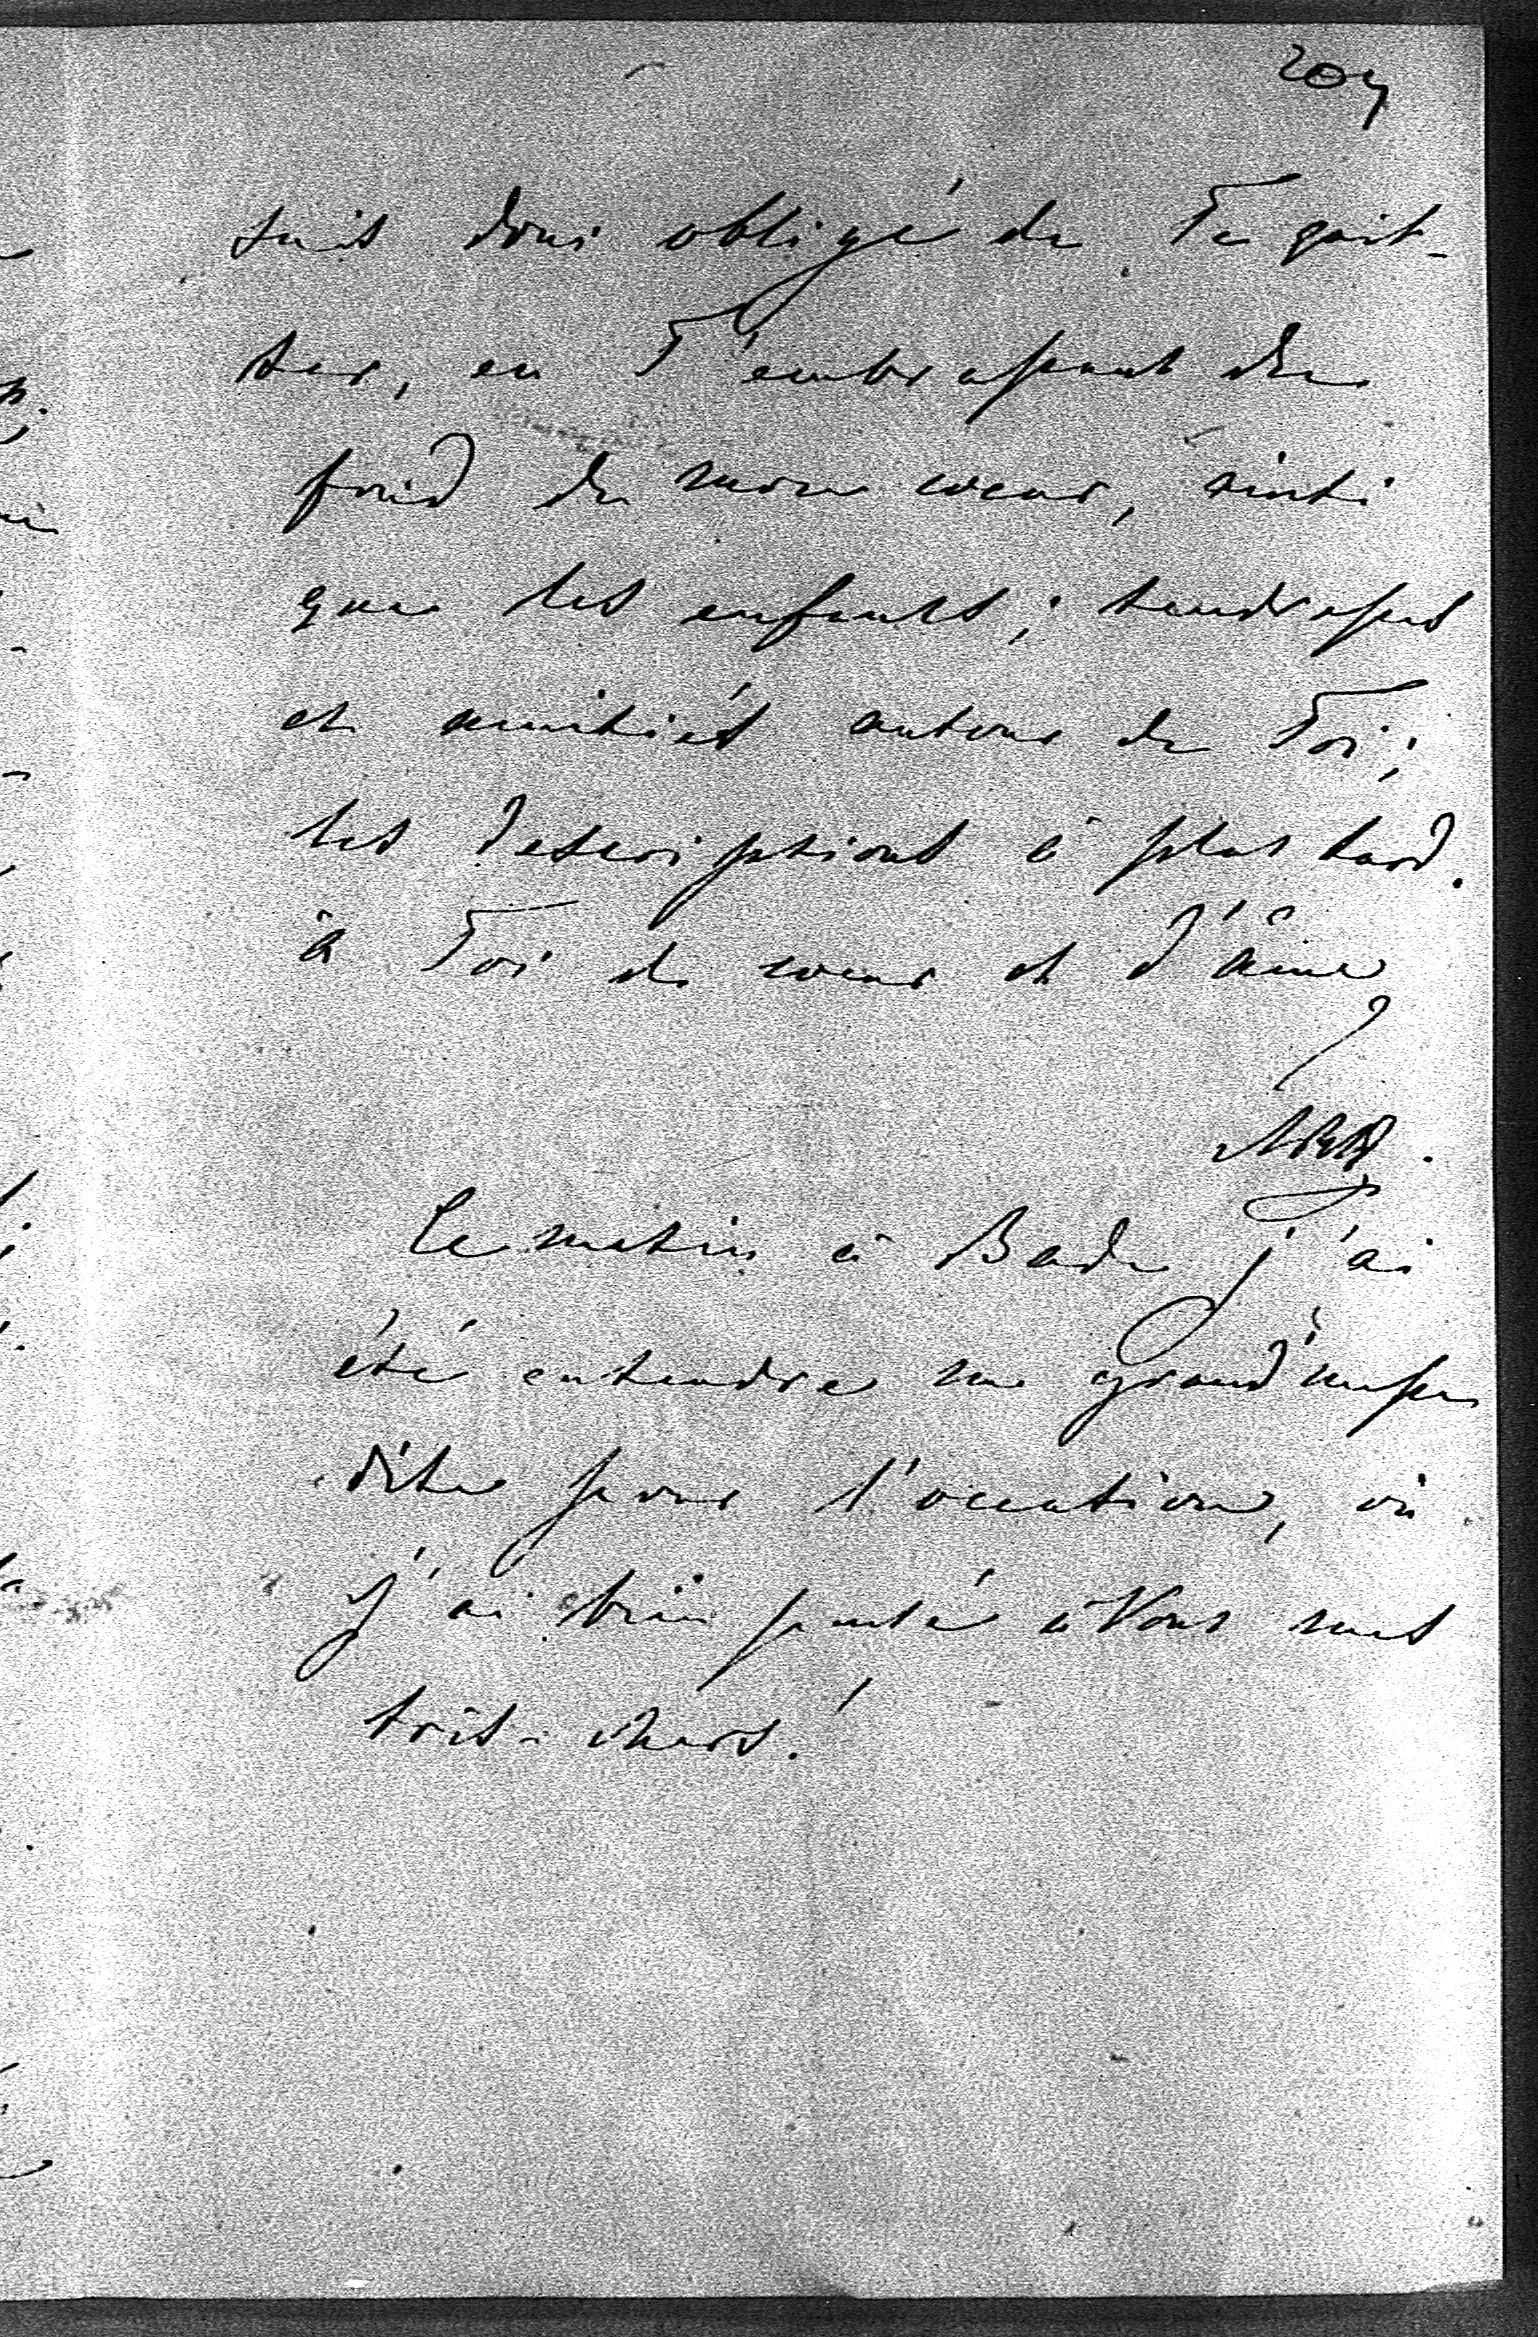 207
suis donc obligé de Te quit-
ter, en T'embrassant du
fond de mon coeur, ainsi
que les enfants; tendresses
et amitiés autour de Toi;
les descriptions à plus tard.
à Toi de coeur et d'âme
Ce matin à Bade j'ai
été entendre une grand'messe
dite pour l'occasion, où
j'ai bien pensé à Vous mes
très-chers!